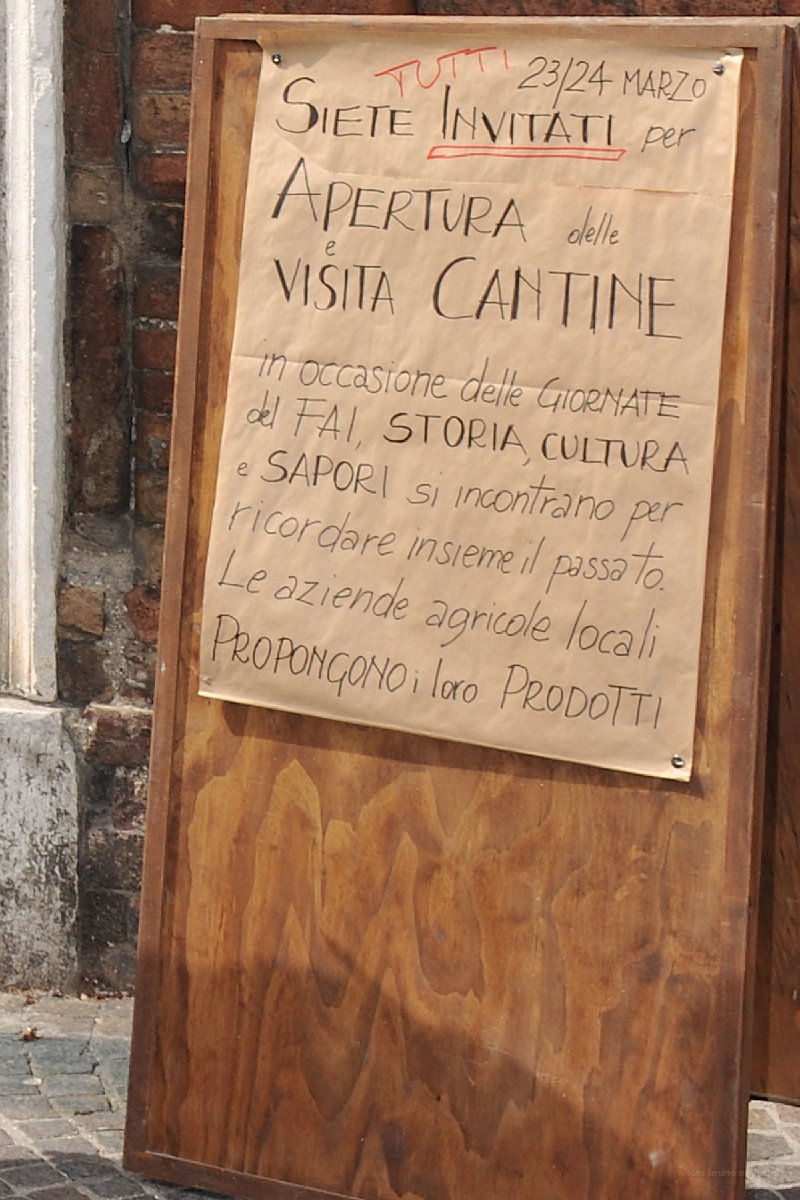 TUTTI 23/24 MARZO
SIETE INVITATI per
APERTURA delle
e
VISITA CANTINE
in occasione delle GIORNATE
del FAI, STORIA, CULTURA
e SAPORI si incontrano per
ricordare insieme il passato.
Le aziende agricole locali
PROPONGONO i loro PRODOTTI